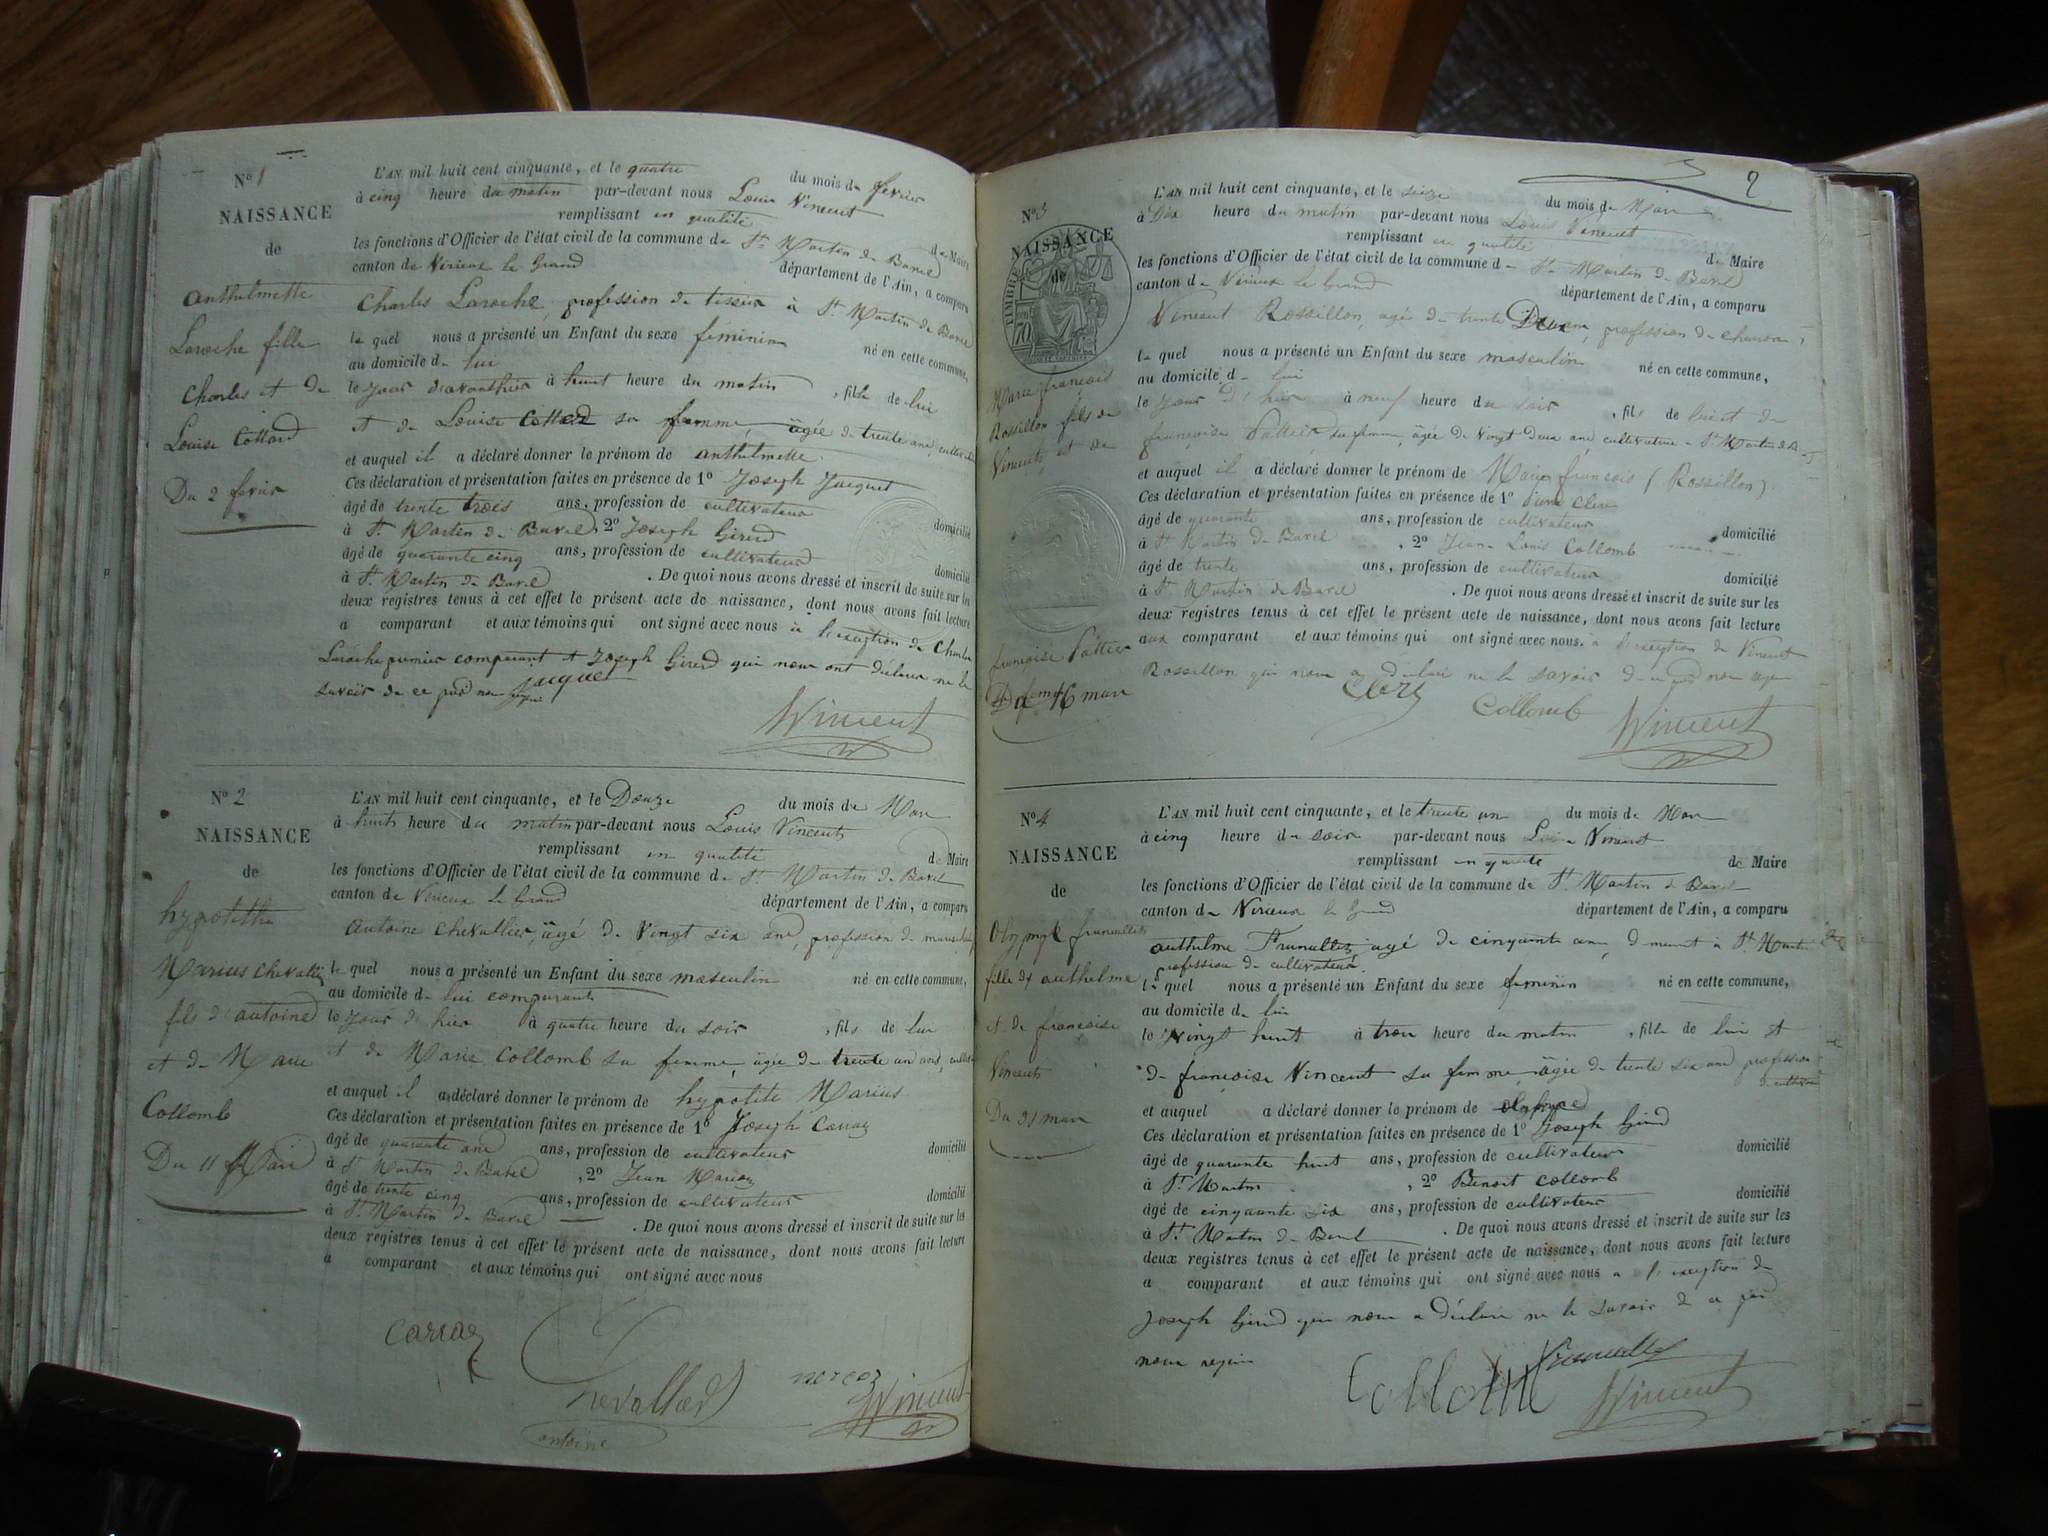 N° 1
NAISSANCE
de
Anthelmette
Laroche fille
Charles et de
Louise Collard
Du 2 fevrier
L'AN mil huit cent cinquante, et le quatre du mois de fevrier
à cinq heure du matin par-devant nous Louis Vincent
remplissant en qualité de Maire
les fonctions d'Officier de l'état civil de la commune de St Martin de Bavel
canton de Virieux le Grand département de l'Ain, a comparu
Charles Laroche, profession de tisseur à St Martin de Bavel
le quel nous a présenté un Enfant du sexe féminin né en cette commune,
au domicile de lui
le jour d'avanthier à huit heure du matin, fille de lui
et de Louise Collard sa femme, âgée de trente ans,
et auquel il a déclaré donner le prénom de anthelmette.
Ces déclaration et présentation faites en présence de 1° Joseph Jacquet
âgé de trente trois ans, profession de cultivateur domicilié
à St Martin de Bavel, 2° Joseph Girerd
âgé de quarante cinq ans, profession de cultivateur domicilié
à St Martin de Bavel. De quoi nous avons dressé et inscrit de suite sur les
deux registres tenus à cet effet le présent acte de naissance, dont nous avons fait lecture
a comparant et aux témoins qui ont signé avec nous à l'exception de Charles
Laroche premier comparant et Joseph Girerd qui nous ont déclaré ne le
savoir de ce
jacquet
Vincent
N° 2
NAISSANCE
de
hypolithe
Marius Chevallier
fils d'antoine
et de Marie
Collomb
Du 11 Mars
L'AN mil huit cent cinquante, et le Douze du mois de Mars
à huit heure du matin par-devant nous Louis Vincent
remplissant en qualité de Maire
les fonctions d'Officier de l'état civil de la commune de St Martin de Bavel
canton de Virieux le Grand département de l'Ain, a comparu
Antoine Chevallier, âgé de vingt six ans, profession de
le quel nous a présenté un Enfant du sexe masculin né en cette commune,
au domicile de lui comparant
le jour de hier à quatre heure du soir, fils de lui
et de Marie Collomb sa femme, âgée de trente un ans,
et auquel il a déclaré donner le prénom de hypolite Marius
Ces déclaration et présentation faites en présence de 1° Joseph Carraz
âgé de quarante ans ans, profession de cultivateur domicilié
à St Martin de Bavel, 2° Jean
âgé de trente cinq ans, profession de cultivateur domicilié
à St Martin de Bavel. De quoi nous avons dressé et inscrit de suite sur les
deux registres tenus à cet effet le présent acte de naissance, dont nous avons fait lecture
a comparant et aux témoins qui ont signé avec nous
Carraz
Chevallier
antoine
Vincent
2
N° 3
NAISSANCE
de
TIMBRE
70
Marie françois
Rossillon fils de
Vincent, et de
françoise Pattier
sa femme
Du 16 mars
L'AN mil huit cent cinquante, et le seize du mois de Mars
à Dix heure du matin par-devant nous Louis Vincent
remplissant en qualité de Maire
les fonctions d'Officier de l'état civil de la commune de St Martin de Bavel
canton de Virieux le Grand département de l'Ain, a comparu
Vincent Rossillon, agé de trente Deux ans, profession de charron,
le quel nous a présenté un Enfant du sexe masculin né en cette commune,
au domicile de lui
le jour d'hier à neuf heure du soir, fils de lui et de
françoise Pattier sa femme, âgée de vingt deux ans cultivatrice à St Martin de B.
et auquel il a déclaré donner le prénom de Marie françois (Rossillon)
Ces déclaration et présentation faites en présence de 1°
âgé de quarante ans, profession de cultivateur domicilié
à St Martin de Bavel, 2° Jean Louis Collomb
âgé de trente ans, profession de cultivateur domicilié
à St Martin de Bavel. De quoi nous avons dressé et inscrit de suite sur les
deux registres tenus à cet effet le présent acte de naissance, dont nous avons fait lecture
aux comparant et aux témoins qui ont signé avec nous. à l'exception de Vincent
Rossillon qui nous a déclaré ne le savoir de ce
Collomb
Vincent
N° 4
NAISSANCE
de
fille d'anthelme
et de françoise
Vincent
Du 31 mars
L'AN mil huit cent cinquante, et le trente un du mois de Mars
à cinq heure du soir par-devant nous Louis Vincent
remplissant en qualité de Maire
les fonctions d'Officier de l'état civil de la commune de St Martin de Bavel
canton de Virieux le Grand département de l'Ain, a comparu
anthelme agé de cinquante ans, demeurant à St Martin
profession de cultivateur.
le quel nous a présenté un Enfant du sexe feminin né en cette commune,
au domicile de lui
le vingt huit à trois heure du matin, fille de lui et
de françoise Vincent sa femme, âgée de trente six ans profession
et auquel a déclaré donner le prénom de
Ces déclaration et présentation faites en présence de 1° Joseph Girerd
âgé de quarante huit ans, profession de cultivateur domicilié
à St Martin, 2° Benoit Collomb
âgé de cinquante six ans, profession de cultivateur domicilié
à St Martin de Bavel. De quoi nous avons dressé et inscrit de suite sur les
deux registres tenus à cet effet le présent acte de naissance, dont nous avons fait lecture
a comparant et aux témoins qui ont signé avec nous a l'exception de
Joseph Girerd qui nous a déclaré ne le savoir de ce
Collomb
Vincent